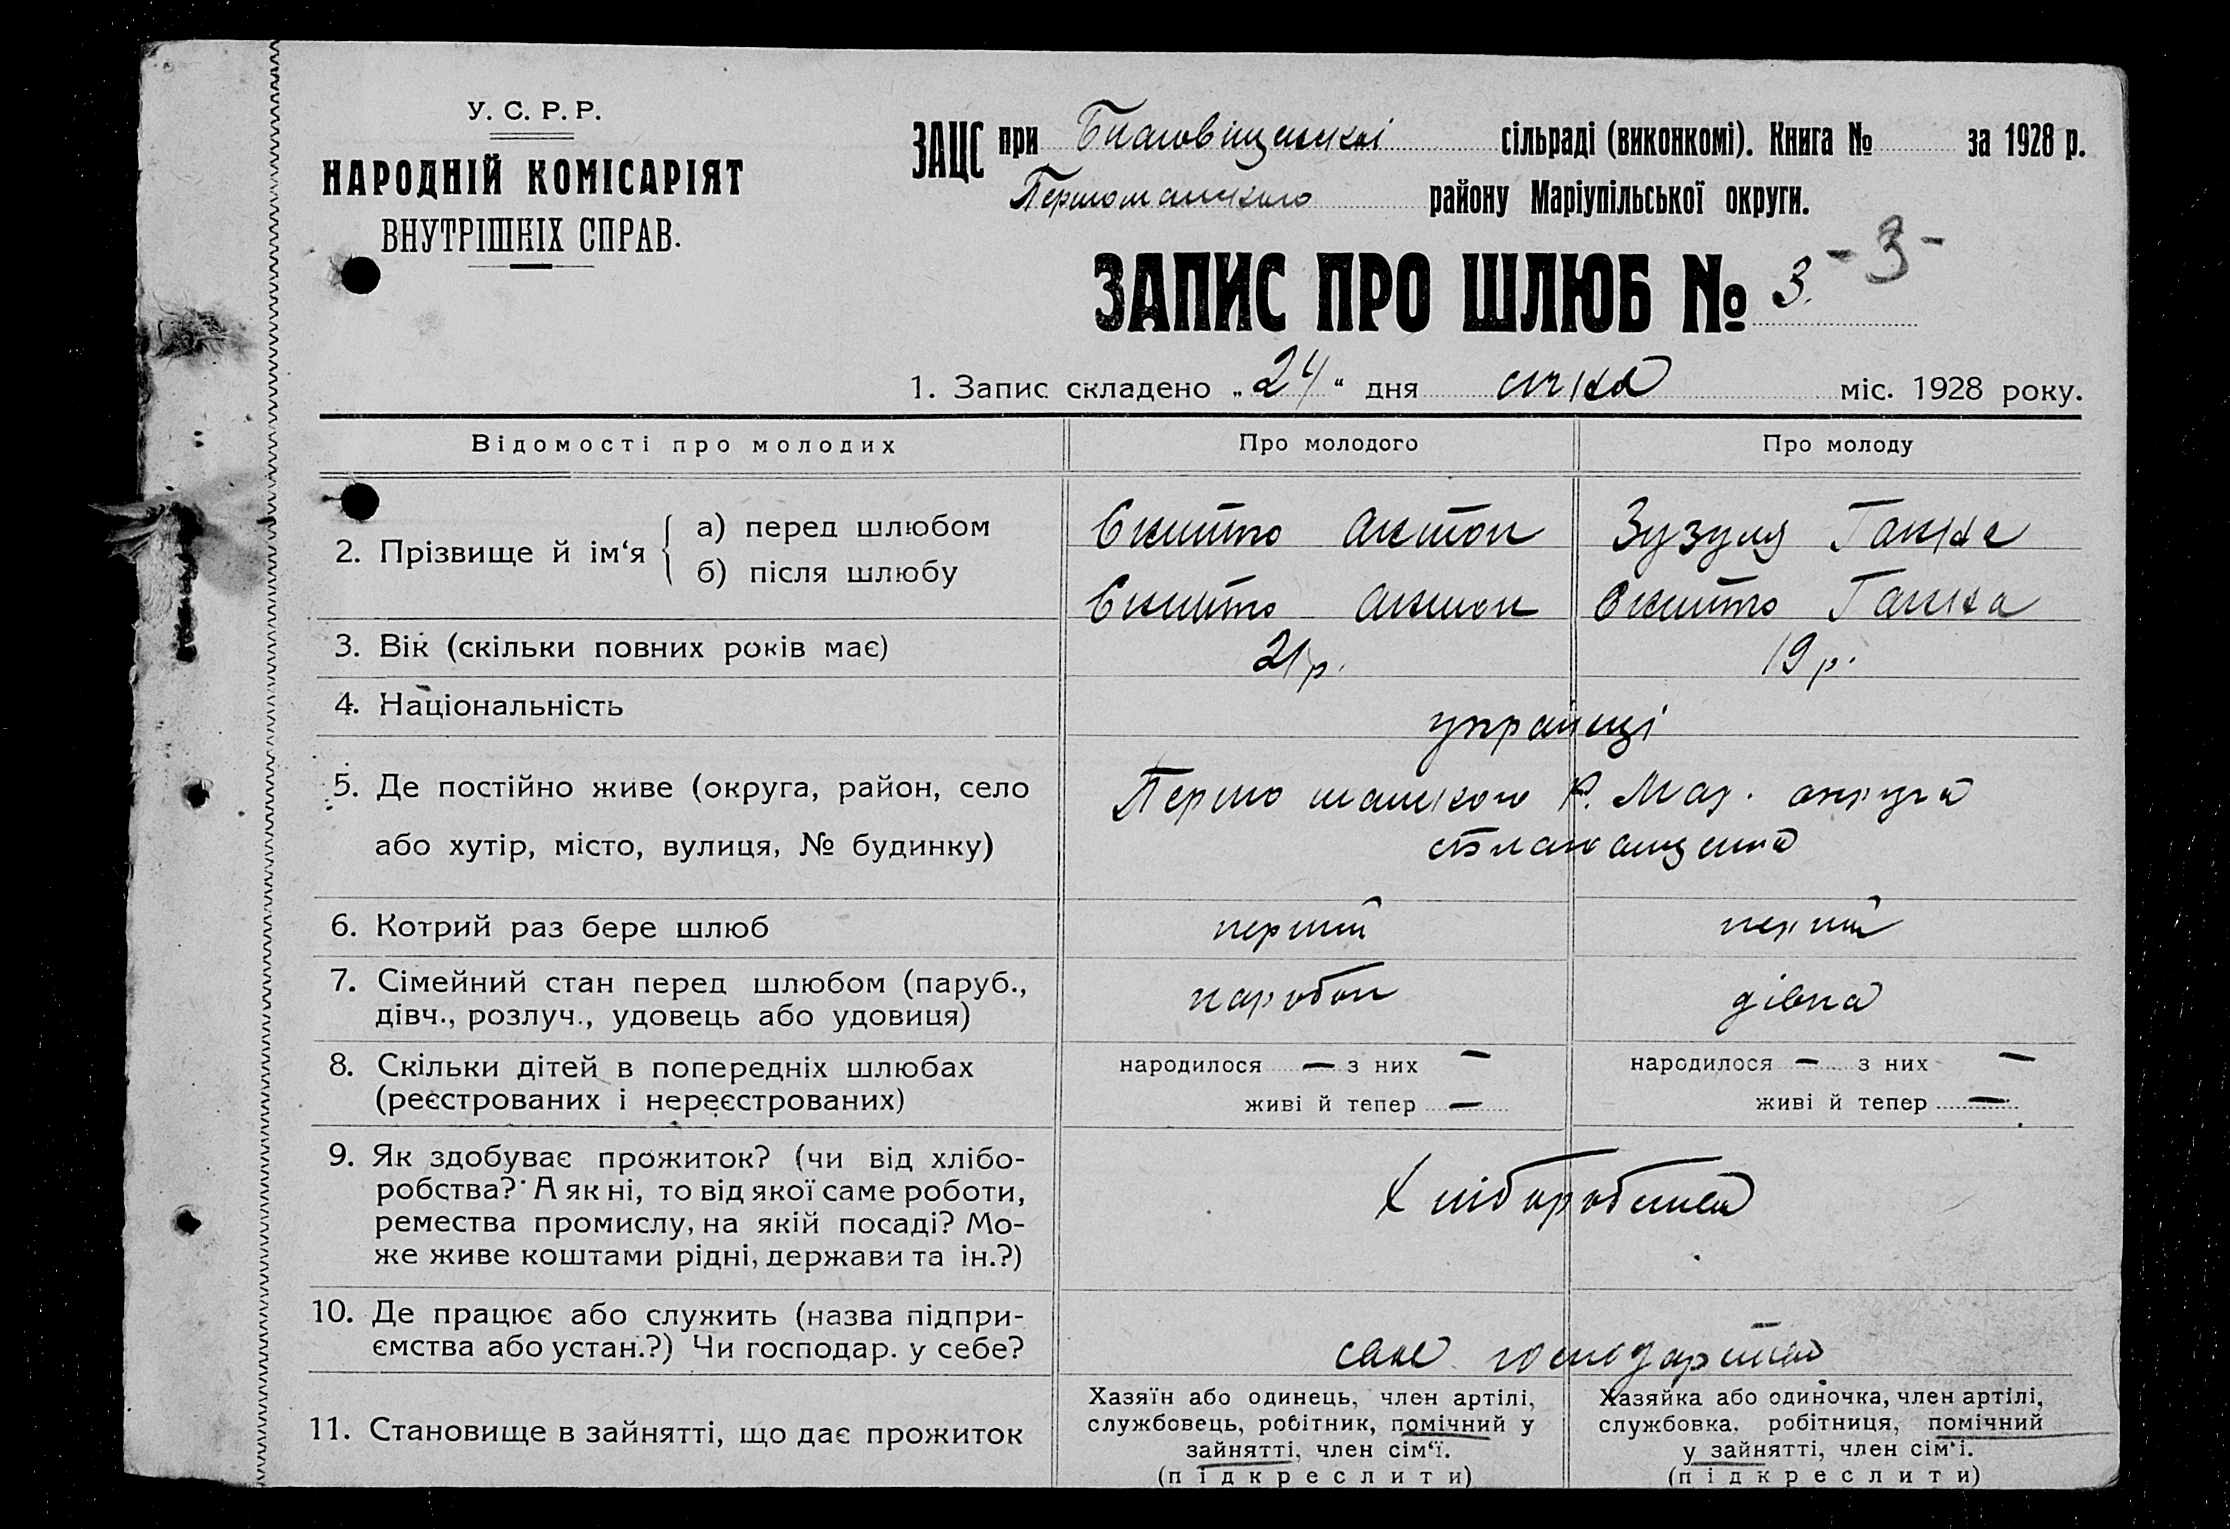 У. С. Р. Р.
НАРОДНІЙ КОМІСАРІЯТ
ВНУТРІШНІХ СПРАВ.
ЗАЦС при Благовіщенскі сільраді (виконкомі). Книга № за 1928 р.
Першотравського району Маріупільської округи.
ЗАПИС ПРО ШЛЮБ № 3. -3-
1. Запис складено „24“ дня січня міс. 1928 року.
Відомості про молодих Про молодого Про молоду
2. Прізвище й ім‘я
а) перед шлюбом Антон Зузуля Ганна
б) після шлюбу Антон Ганна
3. Вік (скільки повних років має) 21 р. 19 р.
4. Національність українці
5. Де постійно живе (округа, район, село Р. Мар. округа
або хутір, місто, вулиця, № будинку)
6. Котрий раз бере шлюб перший перший
7. Сімейний стан перед шлюбом (паруб., паробок дівка
дівч., розлуч., удовець або удовиця)
8. Скільки дітей в попередніх шлюбах народилося — з них — народилося — з них —
(реєстрованих і нереєстрованих) живі й тепер — живі й тепер —
9. Як здобуває прожиток? (чи від хлібо-
робства? А як ні, то від якої саме роботи, Хліборобства
ремества промислу, на якій посаді? Мо-
же живе коштами рідні, держави та ін.?)
10. Де працює або служить (назва підпри-
ємства або устан.?) Чи господар. у себе? господарства
11. Становище в зайнятті, що дає прожиток
Хазяїн або одинець, член артілі,
службовець, робітник, помічний у
зайнятті, член сім‘ї.
(підкреслити)
Хазяйка або одиночка, член артілі,
службовка, робітниця, помічний
у зайнятті, член сім‘ї.
(підкреслити)